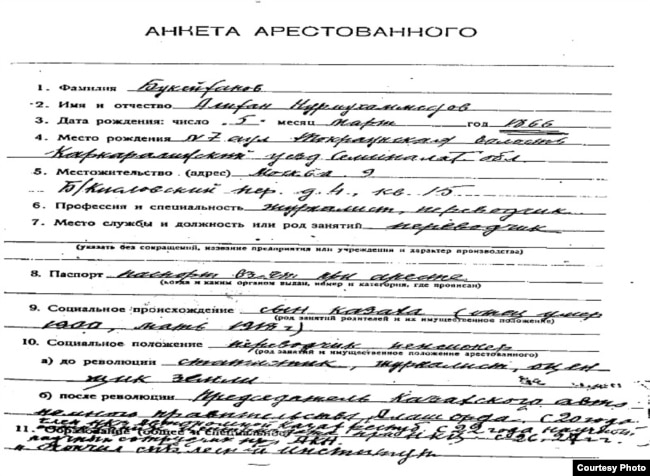 АНКЕТА АРЕСТОВАННОГО
1. Фамилия Букейханов
2. Имя и отчество Алихан Нурмухаммедов
3. Дата рождения: число „5" месяц март год 1866
4. Место рождения №7 аул Токраунская волость
Каркаралинский уезд Семиналат. обл
5. Местожительство (адрес) Москва 9
Б/Кисловский пер. д. 4, кв. 15
6. Профессия и специальность журналист, переводчик
7. Место службы и должность или род занятий переводчик
(указать без сокращений, название предприятия или учреждения и характер производства)
8. Паспорт паспорт взят при аресте
(когда и каким органом выдан, номер и категория, где прописан)
9. Социальное происхождение сын казаха (отец умер
(род занятий родителей и их имущественное положение)
мать
10. Социальное положение переводчик пенсионер
(род занятий и имущественное положение арестованного)
а) до революции статистик, журналист, оцен
щик земли
б) после революции Председатель Казахского авто
номного правительства Алаш орда. С 20 года
член с 22 года научный
11. Образование (общее и специальное)
научный сотрудник
окончил институт
Courtesy Photo